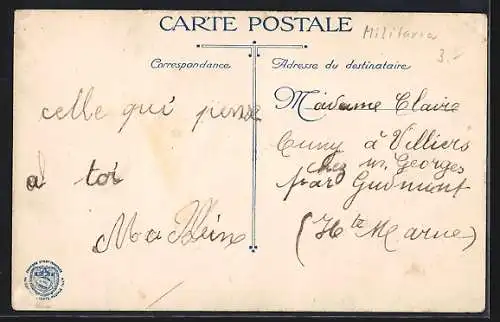 CARTE POSTALE
Militaria
3.-
Correspondance
Adresse du destinataire
celle qui pense
a toi
Madame Claire
Cuny à Villiers
chez m. Georges
par Gudmont
(Hte Marne)